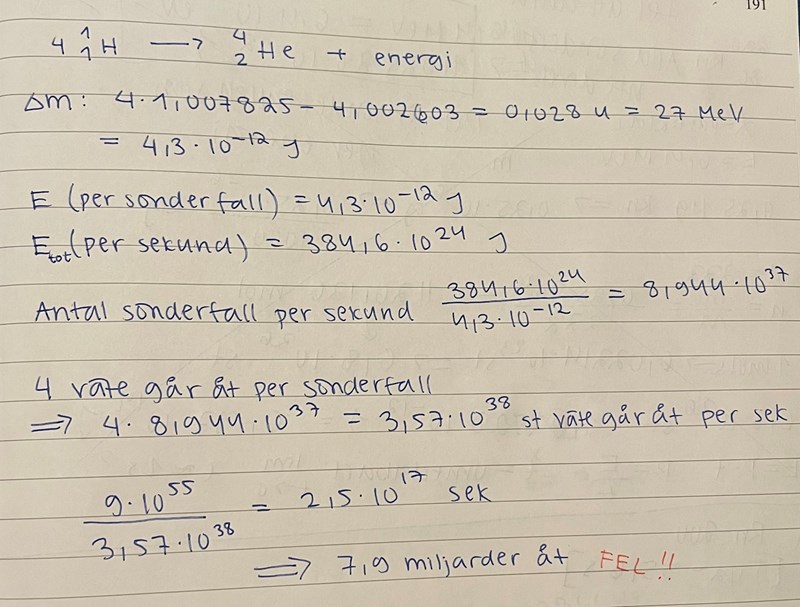 191
4 ¹₁H ⟶ ⁴₂He + energi
Δm: 4·1,007825 - 4,002603 = 0,028 u = 27 MeV
= 4,3·10⁻¹² J
E (per sonderfall) = 4,3·10⁻¹² J
E_tot (per sekund) = 384,6·10²⁴ J
Antal sonderfall per sekund 384,6·10²⁴ / 4,3·10⁻¹² = 8,944·10³⁷
4 väte går åt per sonderfall
⟹ 4·8,944·10³⁷ = 3,57·10³⁸ st väte går åt per sek
9·10⁵⁵ / 3,57·10³⁸ = 2,5·10¹⁷ sek
⟹ 7,9 miljarder åt FEL!!